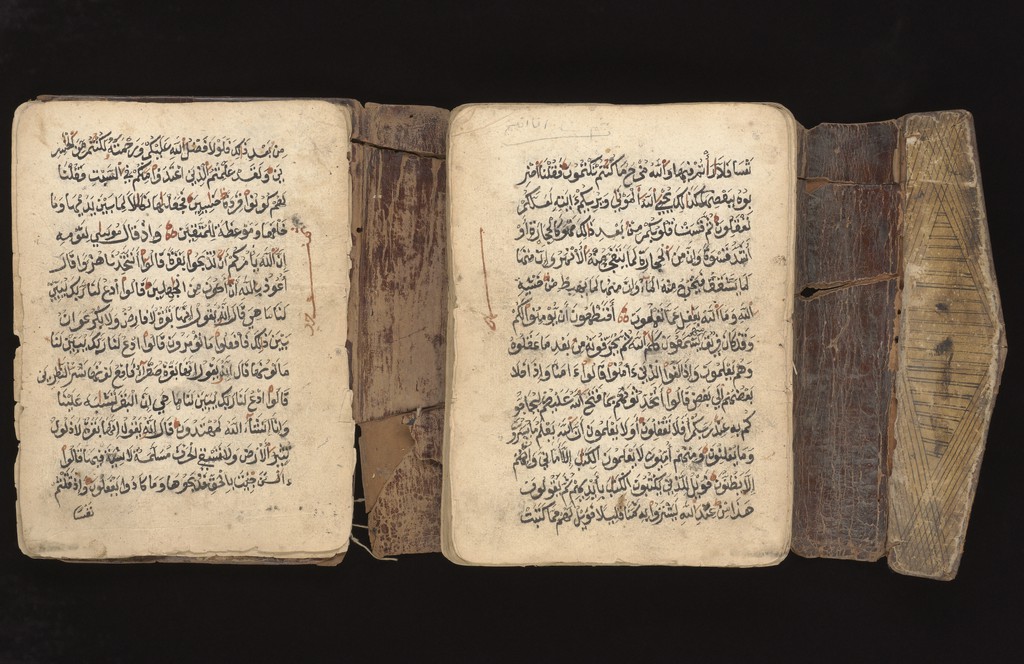 من بعد ذلك فلولا فضل الله عليكم ورحمته لكنتم من الخسر
ين ولقد علمتم الذين اعتدوا منكم في السبت فقلنا
لهم كونوا قردة خسين فجعلنها نكلا لما بين يديها وما
خلفها وموعظة للمتقين واذ قال موسى لقومه
ان الله يامركم ان تذبحوا بقرة قالوا اتتخذنا هزوا قال
اعوذ بالله ان اكون من الجهلين قالوا ادع لنا ربك يبين
لنا ما هي قال انه يقول انها بقرة لا فارض ولا بكر عوان
بين ذلك فافعلوا ما تومرون قالوا ادع لنا ربك يبين لنا
ما لونها قال انه يقول انها بقرة صفراء فاقع لونها تسر النظرين
قالوا ادع لنا ربك يبين لنا ما هي ان البقر تشبه علينا
وانا ان شاء الله لمهتدون قال انه يقول انها بقرة لا ذلول
تثير الارض ولا تسقي الحرث مسلمة لا شية فيها قالوا
الئن جئت بالحق فذبحوها وما كادوا يفعلون واذ قتلتم
نفسا
نفسا فادارأتم فيها والله مخرج ما كنتم تكتمون فقلنا اضر
بوه ببعضها كذلك يحي الله الموتى ويريكم ءايته لعلكم
تعقلون ثم قست قلوبكم من بعد ذلك فهي كالحجارة او
اشد قسوة وان من الحجارة لما يتفجر منه الانهر وان منها
لما يشقق فيخرج منه الماء وان منها لما يهبط من خشية
الله وما الله بغفل عما تعملون افتطمعون ان يومنوا لكم
وقد كان فريق منهم يسمعون كلم الله ثم يحرفونه من بعد ما عقلوه
وهم يعلمون واذا لقوا الذين ءامنوا قالوا ءامنا واذا خلا
بعضهم الى بعض قالوا اتحدثونهم بما فتح الله عليكم ليحاجو
كم به عند ربكم افلا تعقلون اولا يعلمون ان الله يعلم ما يسر
وما يعلنون ومنهم اميون لا يعلمون الكتب الا اماني وان هم
الا يظنون فويل للذين يكتبون الكتب بايديهم ثم يقولون
هذا من عند الله ليشتروا به ثمنا قليلا فويل لهم مما كتبت